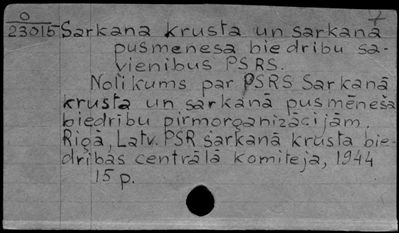 0
23015
Sarkanā krusta un sarkanā
pusmēnesa biedrību sa-
vienības PSRS.
Nolikums par PSRS Sarkanā
krusta un sarkanā pusmēneša
biedrību pirmorganizācijām.
Rīgā, Latv. PSR sarkanā krusta bie-
drības centrālā komiteja, 1944
15 p.